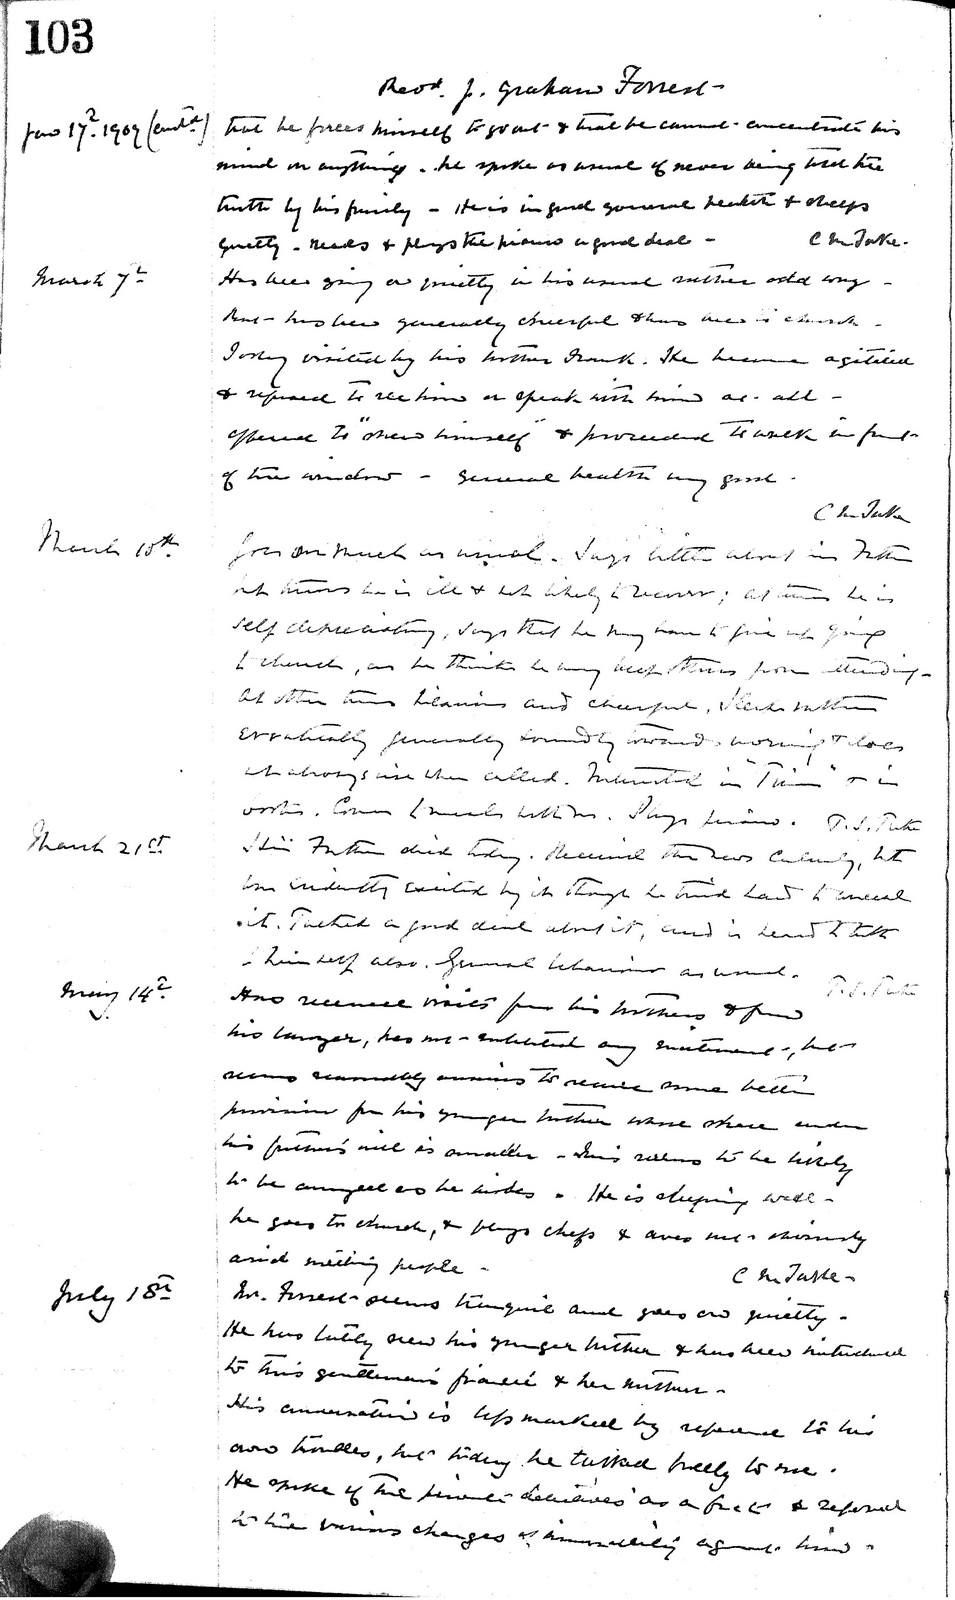 103
Revd. J. Graham Forrest
Jan 17th. 1909 (contd) that he forces himself to go out & that he cannot concentrate his
mind on anything. he spoke as usual of never being told the
truth by his family - He is in good general health & sleeps
quietly - reads & plays the piano a good deal - C M Tuke.
March 7th Has been going on quietly in his usual rather odd way -
But has been generally cheerful & has been to church -
Today visited by his brother Frank. He became agitated
& refused to see him or speak with him at all -
offered to "shew himself" & proceeded to walk in front
of the window - General health very good.
C M Tuke
March 10th Goes on much as usual. Says little about his Father
but knows he is ill & not likely to recover; at times he is
self depreciating, says that he may have to give up going
to church, as he thinks he may keep others from attending -
At other times hilarious and cheerful, Sleeps rather
erratically generally soundly towards morning & does
not always rise when called. Interested in "Times" & in
books. Comes to meals with us. Plays piano. T.S. Tuke
March 21st. His Father died today. Received the news calmly, but
was evidently excited by it though he tried hard to conceal
it. Talked a good deal about it, and is heard to talk
to himself also. General behaviour as usual. T.S. Tuke
May 14th Has received visits from his brothers & from
his lawyer, has not exhibited any excitement, but
seems reasonably anxious to secure some better
provision for his younger brother whose share under
his father's will is smaller - This seems to be likely
to be arranged as he wishes. He is sleeping well -
he goes to church, & plays chess & does not obviously
avoid meeting people - C M Tuke -
July 18th Mr. Forrest seems tranquil and goes on quietly -
He has lately seen his younger brother & has been introduced
to this gentleman's fiancée & her mother -
His conversation is less marked by reference to his
own troubles, but today he talked freely to me.
He spoke of the as a fact & referred
to the various charges of immorality against him -